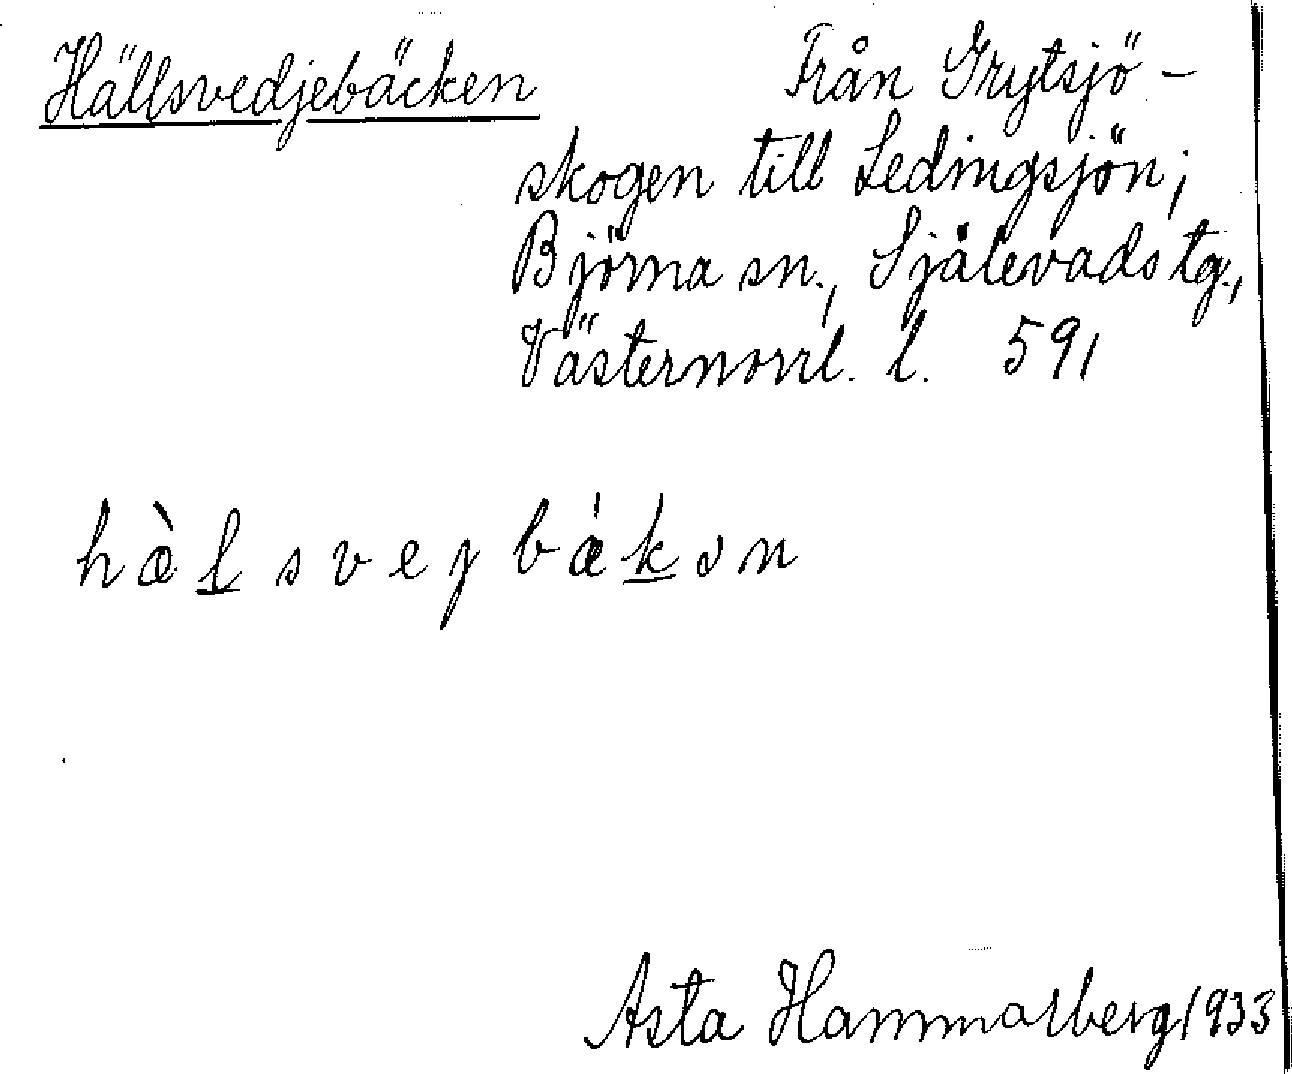 Hällsvedjebäcken Från Grytsjö-
skogen till Ledingsjön;
Björna sn., Själevads tg.,
Västernorrl. l. 591
hæ̀l̲svejbǽk̲ən
Asta Hammarberg 1933